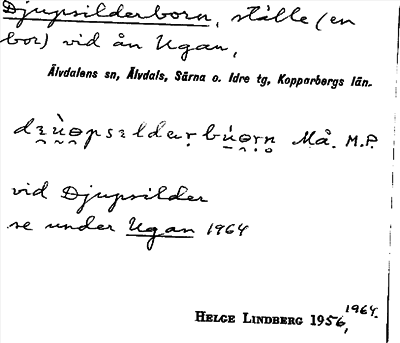 Djupsilderborn, ställe (en
bor) vid ån Ugan,
Älvdalens sn, Älvdals, Särna o. Idre tg, Kopparbergs län.
Må. M.P.
vid Djupsilder
se under Ugan 1964
HELGE LINDBERG 1956, 1964.